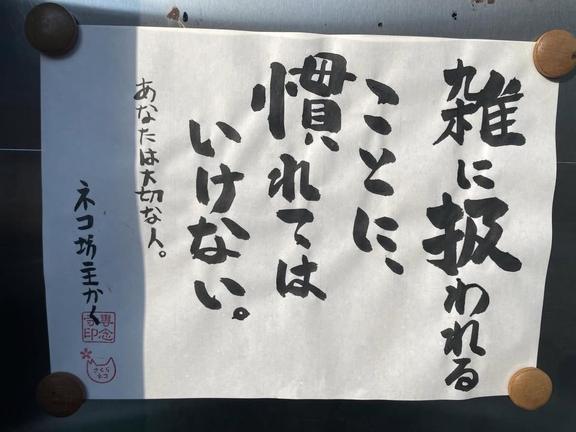 雑に扱われる
ことに、
慣れては
いけない。
あなたは大切な人。
ネコ坊主かく
専念
寺印
さくら
ネコ